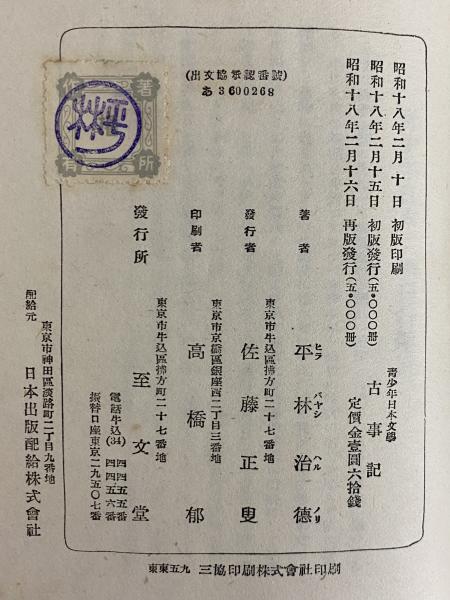 昭和十八年二月 十日 初版印刷
昭和十八年二月十五日 初版發行(五・〇〇〇冊)
昭和十八年二月十六日 再版發行(五・〇〇〇冊)
青少年日本文學
古事記
定價金壹圓六拾錢
(出文協承認番號)
あ360026８
著者 平林治德
ヒラ バヤシ ハル ノリ
東京市牛込區拂方町二十七番地
發行者 佐藤正叟
東京市京橋區銀座西二丁目三番地
印刷者 高橋郁
東京市牛込區拂方町二十七番地
發行所 至文堂
電話牛込(34) 四四五五番
四四五六番
振替口座東京二九五〇七番
配給元
東京市神田區淡路町二丁目九番地
日本出版配給株式會社
東東五九 三協印刷株式會社印刷
著
所
有
平林